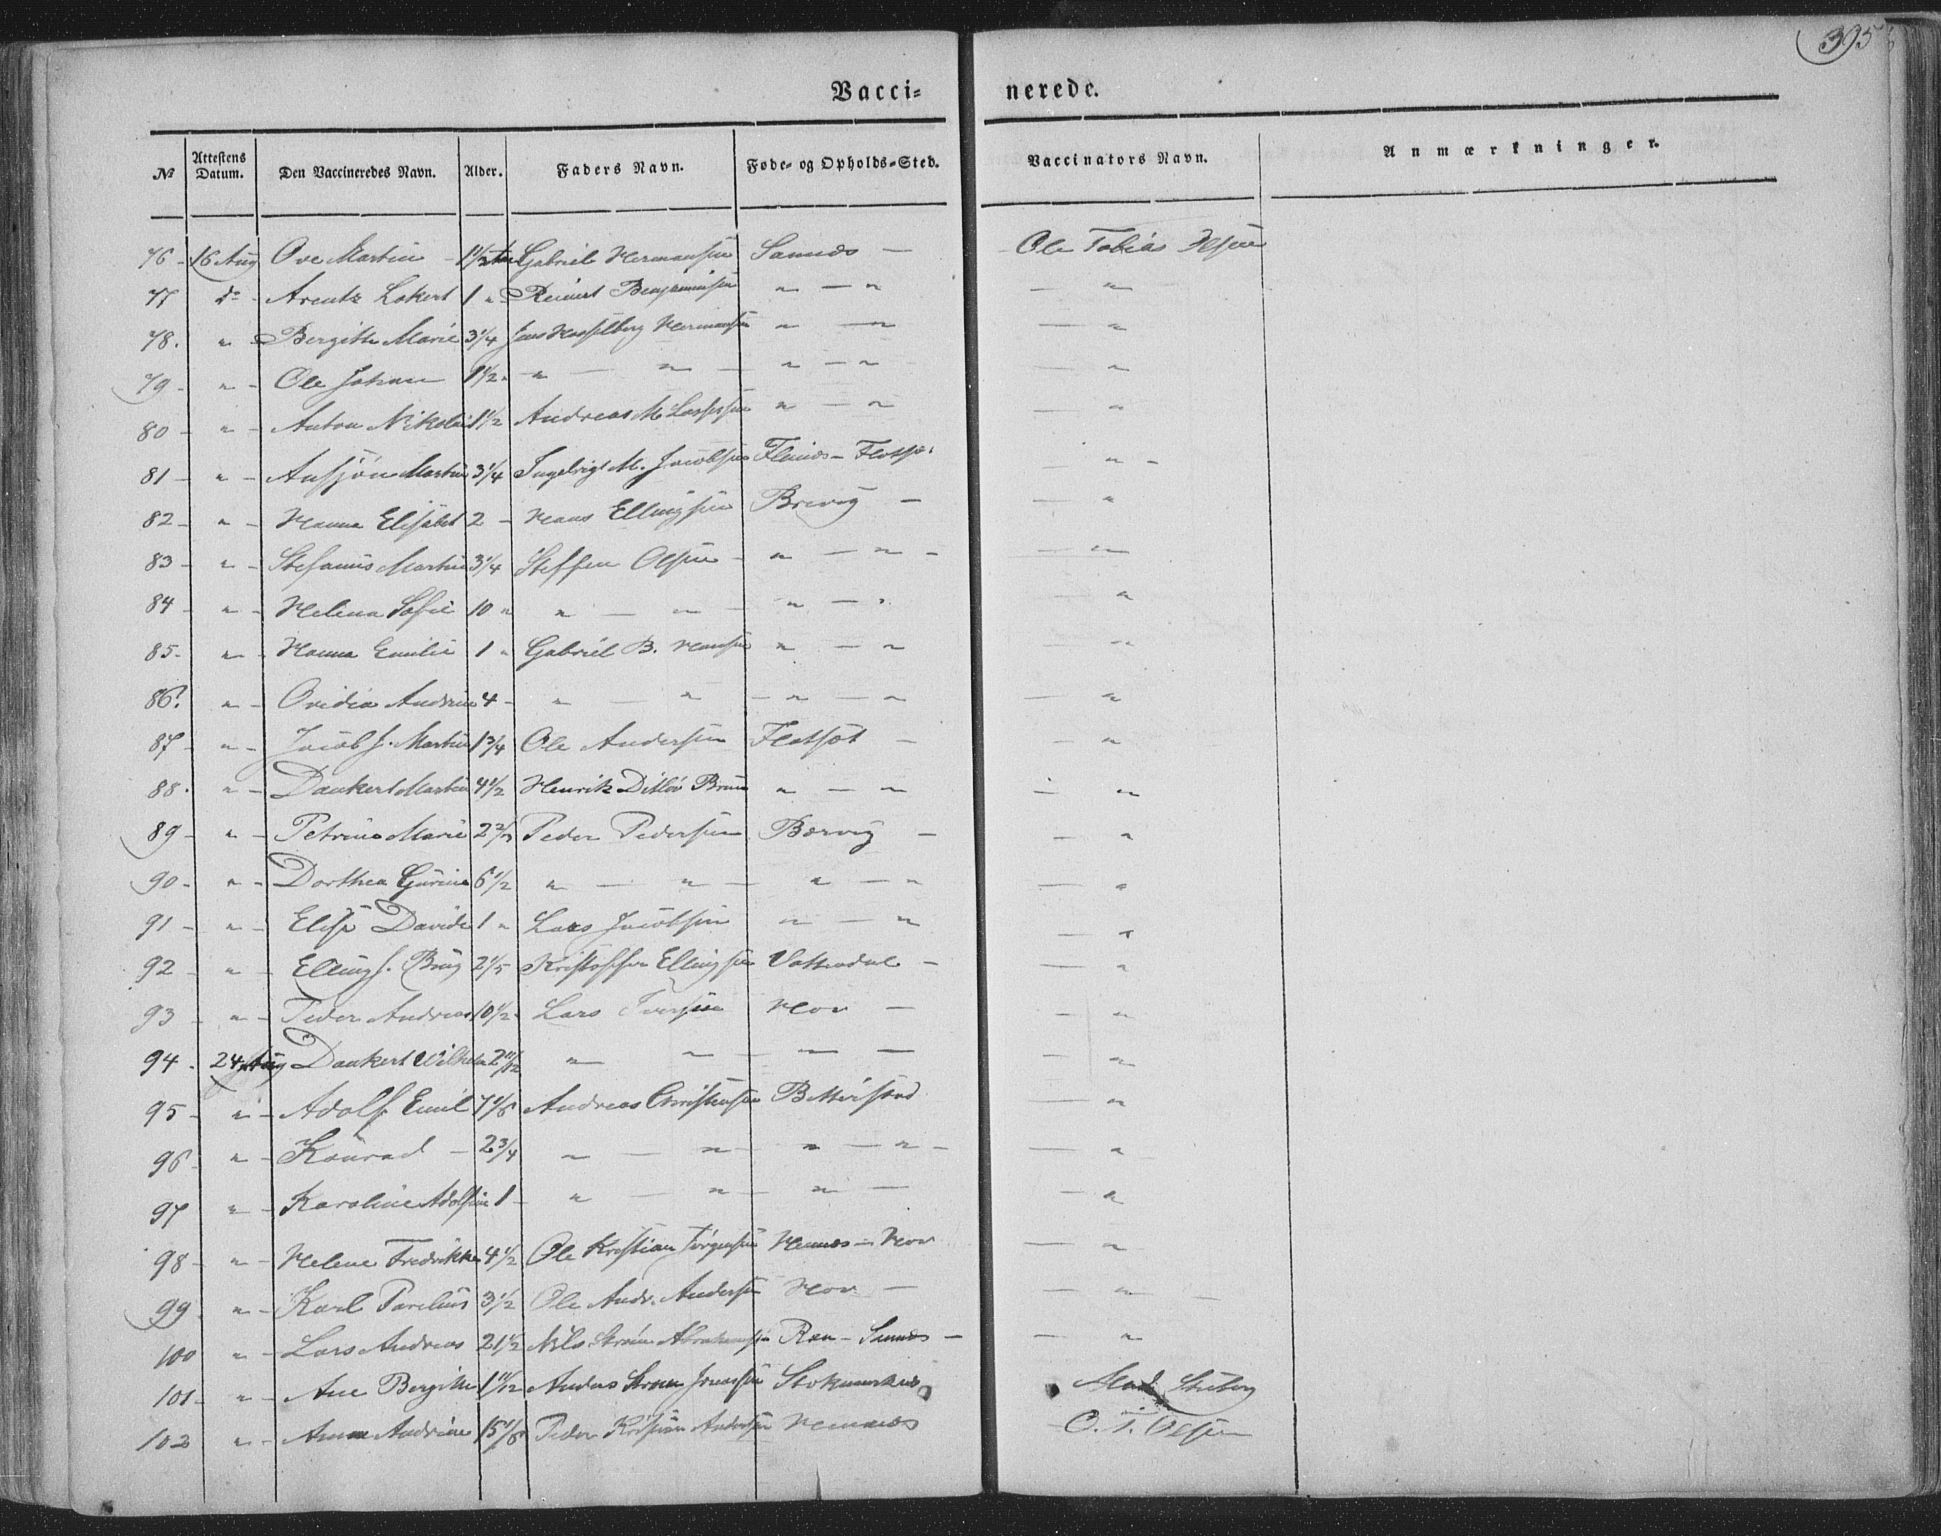 395
Vacci- nerede.
No Attestens Datum. Den Vaccineredes Navn. Alder. Faders Navn. Føde- og Opholds-Sted. Vaccinators Navn. Anmærkninger.
76 - 16 Aug Ove Martin - 1 1/2 Gabriel Hermansen Sannæs - Ole Tobias Olsen
77 do - Arentz Lokert 1 " Reinert Benjaminsen " - " - "
78. " - Bergithe Marie 3 1/4 Jens Hasselberg Hermansen " - " - "
79 - " - Ole Johan 1 1/2 " " - " - " - " - "
80 - " - Anton Nikolai 1 1/2 Andreas M. " - " - "
81 - " - Martin 3 1/4 Ingebrigt M. Jacobsen - " -
82 - " - Hanna Elisabet 2 - Hans Ellingsen Brevig - - "
83 - " - Stefanus Martin 3 1/4 Steffen Olsen - " - " - - "
84 " - Helena Sofie 10 " " - " - " - " - "
85 - " - Hanna Emilie 1 " Gabriel B. Hansen " - " - "
86. " - Ovidia Andrine 4 - " - " - " - " - "
87 - " - Jacob J. Martin 1 3/4 Ole Andersen Flatset - - "
88. " - Dankert Martin 4 1/2 Henrik Ditlev Bruun " - " - "
89 - " - Petrine Marie 2 2/3 Peder Pedersen Børvig - - "
90 - " - Dorthea Gurine 6 1/2 " - " - " - " - "
91 - " - Elise Davida 1 " Lars Jacobsen " - " - "
92 - " - Elling J. 2 1/5 Kristoffer Ellingsen Vottendal - - "
93 - " - Peder Andreas 10 1/2 Lars Iversen Hov - - "
94 - 24 Aug Dankert Wilhelm 2 11/12 " - " - - - "
95 - " - Adolf Emil 7 1/6 Andreas Christensen - "
96 - " - Konrad - 2 3/4 " - " - " - " - - "
97 - " - Karoline Adolfine 1 - " - " - " - - "
98 - " - Helene Fredrikke 4 1/2 Ole Kristian Jørgensen Hennæs - Hov - "
99 " - Karl Parelius 3 1/2 Ole Andr. Andersen Hov - - " -
100 " - Lars Andreas 21 1/2 Nils Strøm Abrahamsen - Sannæs - - "
101 - " - Ane Bergithe 1 11/12 Anders Strøm Jonassen Stokmarknæs
102 " - Anna Andrine 15 1/6 Peder Kristian Andersen Hennæs O. T. Olsen